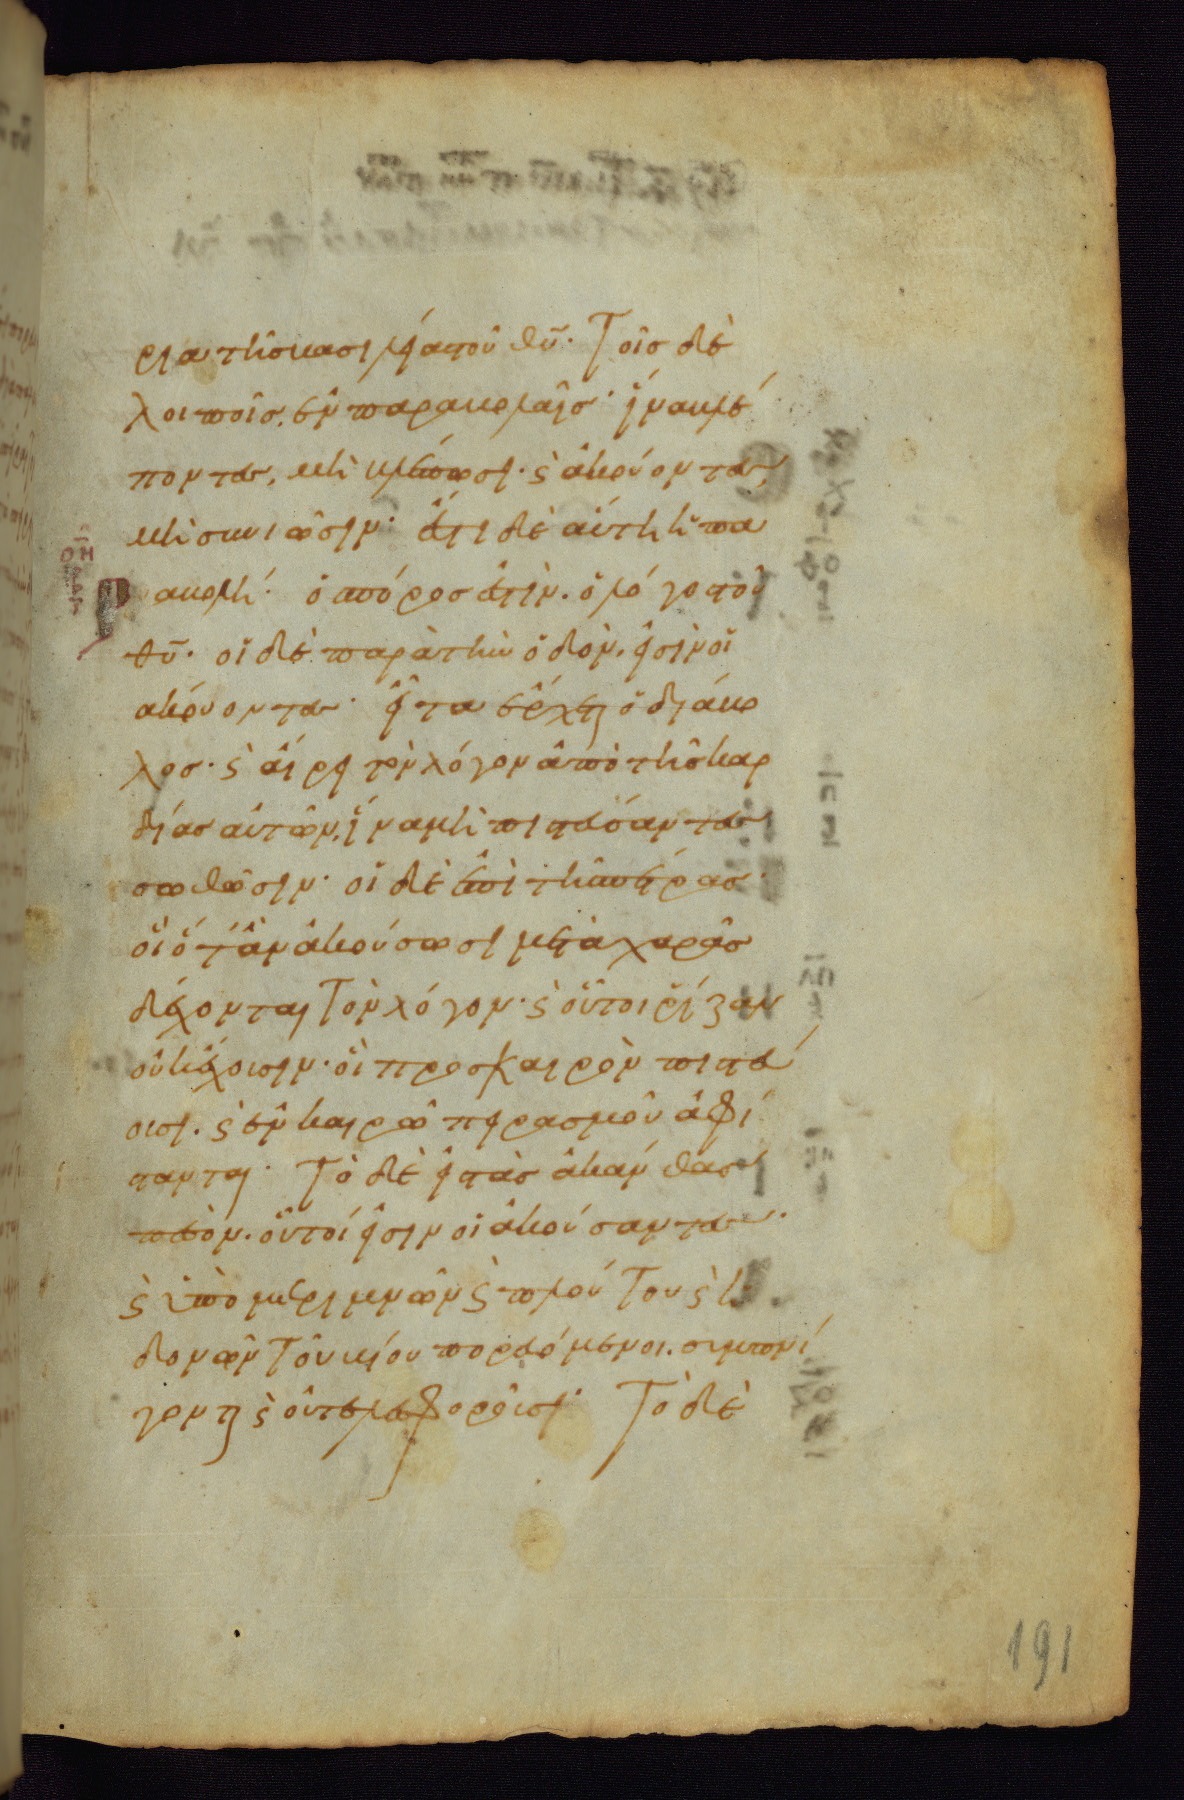 ρια τῆς βασιλείας τοῦ θῦ· Τοῖς δὲ
λοιποῖς, ἐν παραβολαῖς· ἵνα βλέ
ποντες, μὴ βλέπωσι· ϛ ἀκούοντες,
μὴ συνιῶσιν· ἔστι δὲ αὕτη ἡ πα
ραβολή· ὁ σπόρος ἐστὶν, ὁ λόγος τοῦ
θῦ· οἱ δὲ παρὰ τὴν ὁδὸν, εἰσὶν οἱ
ἀκούοντες· εἶτα ἔρχεται ὁ διάβο
λος· ϛ αἴρει τὸν λόγον ἀπὸ τῆς καρ
δίας αὐτῶν, ἵνα μὴ πιστεύσαντες
σωθῶσιν· οἱ δὲ ἐπὶ τῆς πέτρας·
οἳ ὅταν ἀκούσωσι μετὰ χαρᾶς
δέχονται Τὸν λόγον· ϛ οὗτοι ῥίζαν
οὐκ ἔχουσιν· οἳ πρὸς καιρὸν πιστεύ
ουσι· ϛ ἐν καιρῷ πειρασμοῦ ἀφί
στανται· Τὸ δὲ εἰς τὰς ἀκάνθας
πεσὸν· οὗτοί εἰσιν οἱ ἀκούσαντες·
ϛ ὑπὸ μεριμνῶν ϛ πλούτου ϛ ἡ
δονῶν τοῦ βίου πορευόμενοι, συμπνί
γονται ϛ οὐ τελεσφοροῦσι· Τὸ δὲ
191